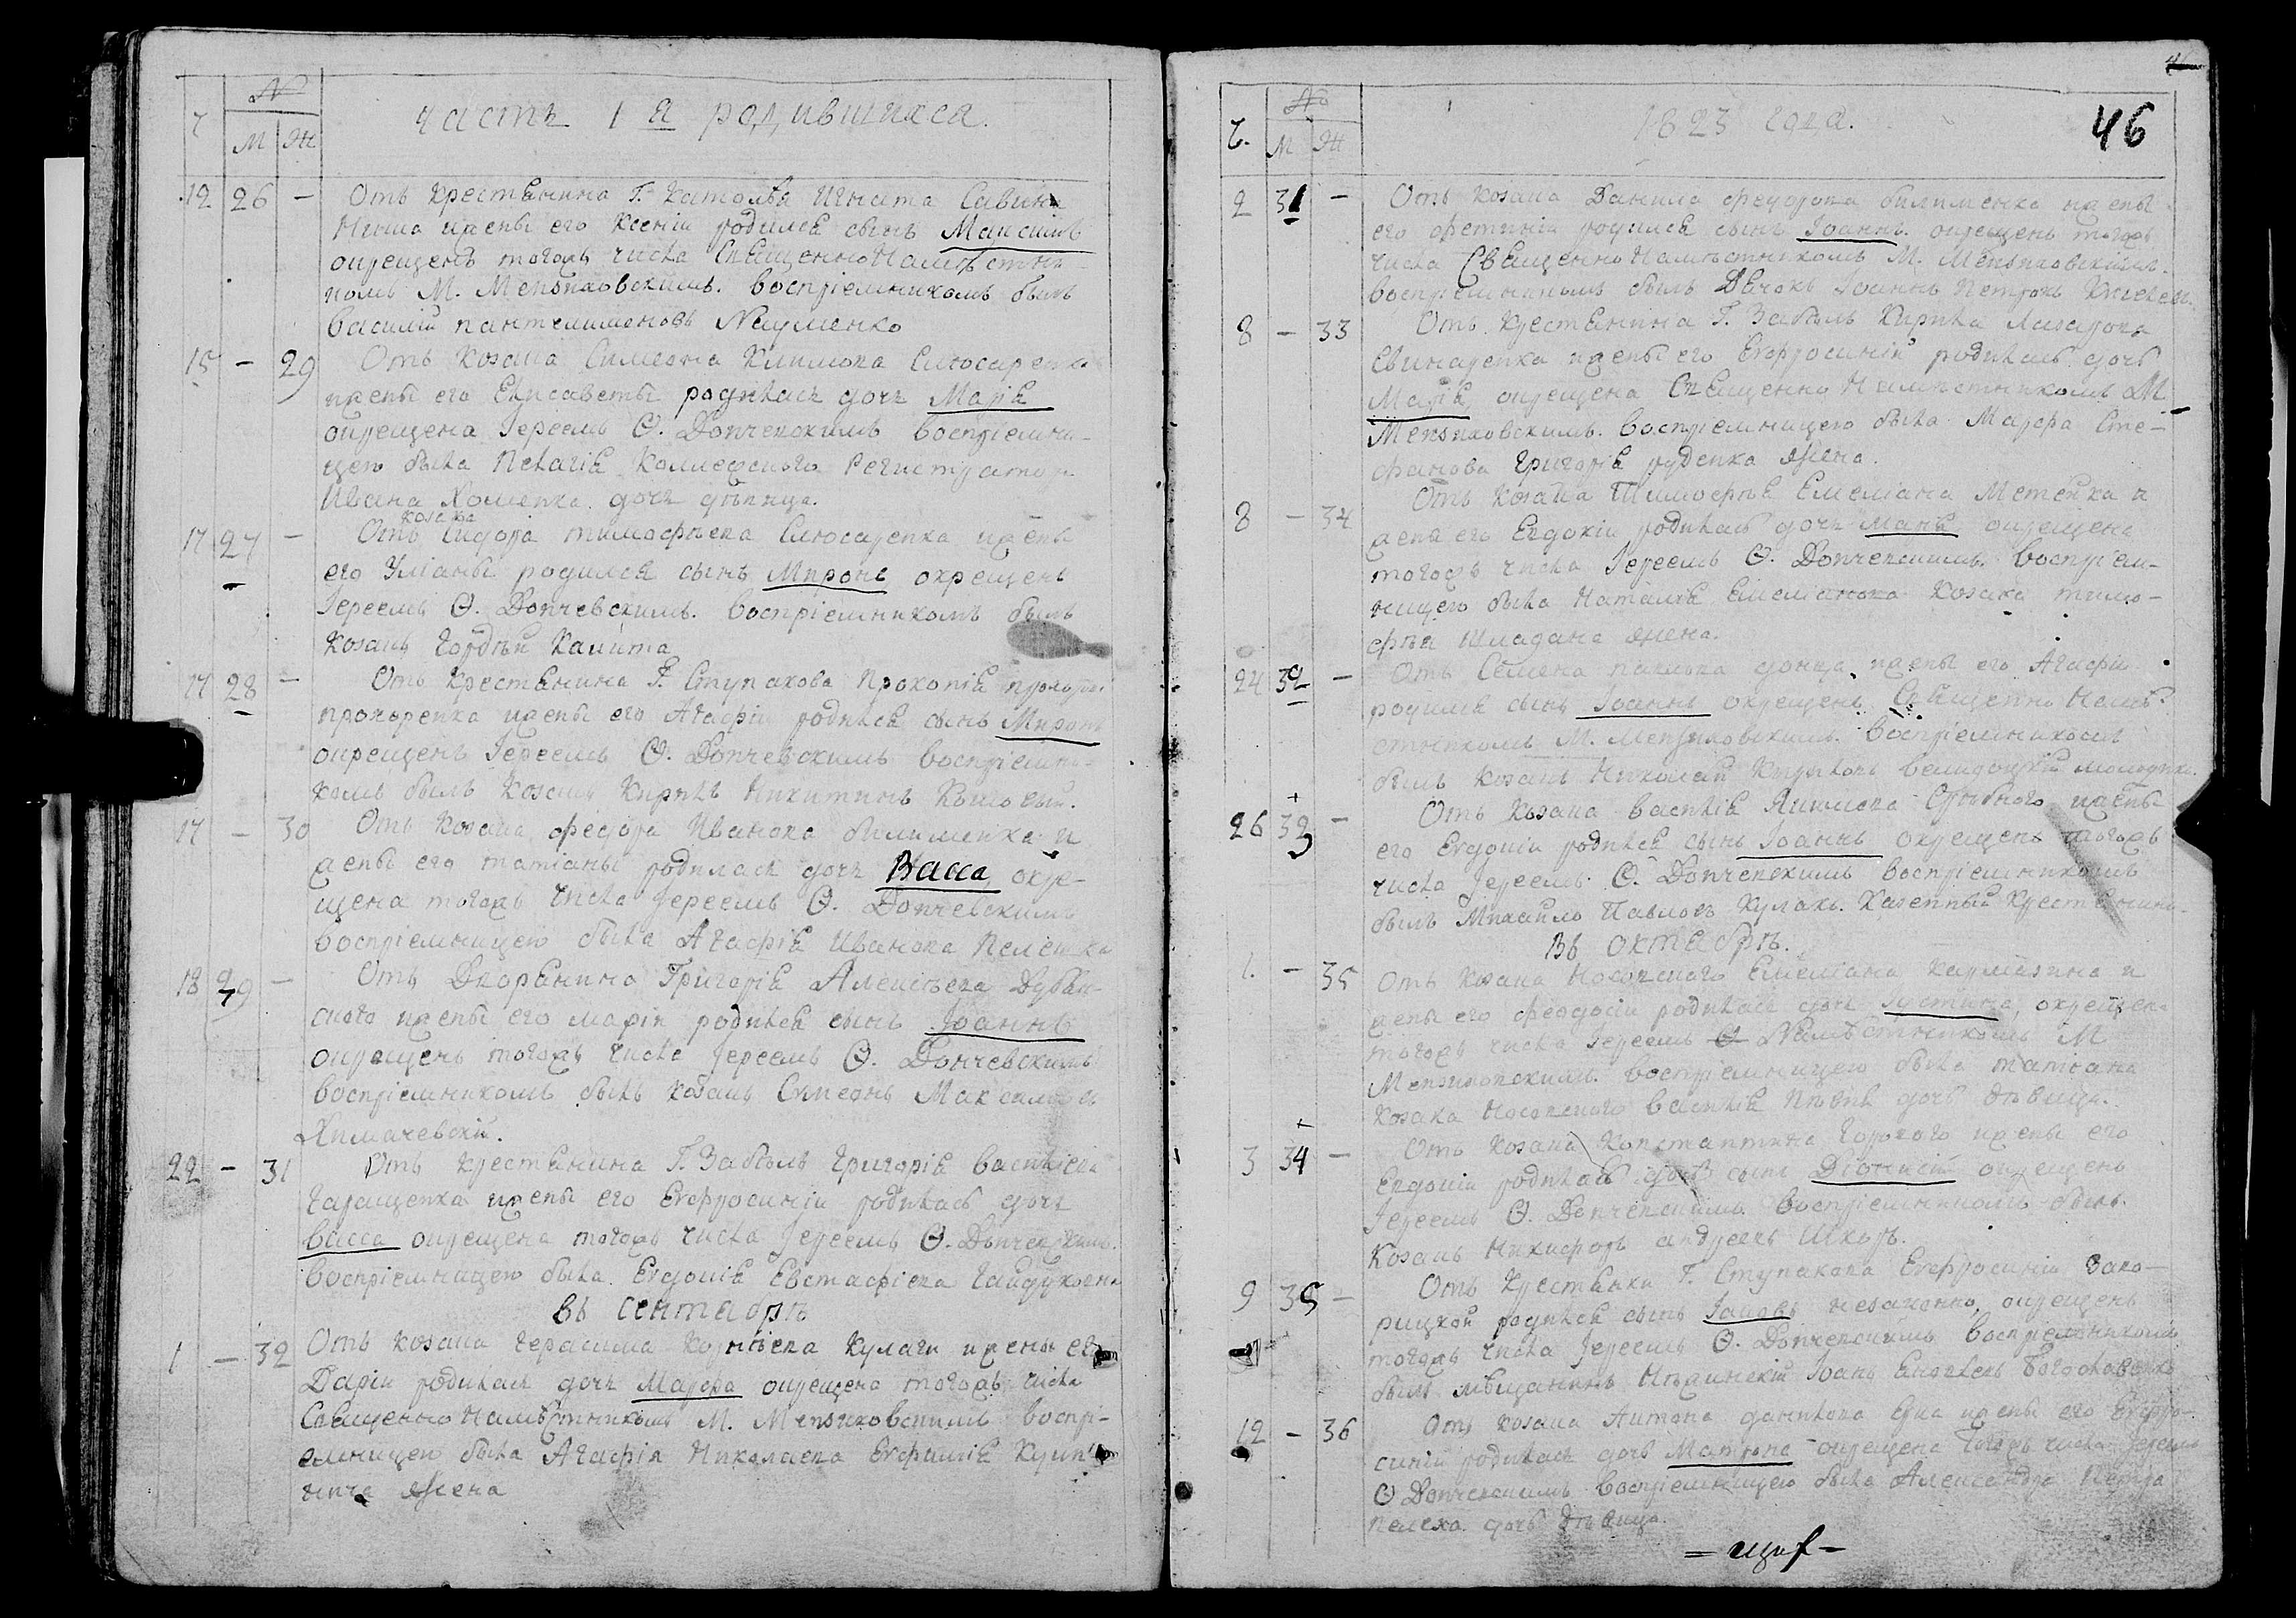 Ч
№
М Ж
часть 1я родившихся.
12 26 — Отъ крестьянина Г. Игната Савина
жены его Ксеніи родился сынъ Максимъ
окрещенъ тогожъ числа СвященноНамѣстни-
комъ М. Мензиховскимъ. воспріемникомъ былъ
василій пантелимоновъ Науменко
15 — 29 Отъ козака Симеона Климова Слюсаренка
и жены его Елисаветы родилась дочь Марія
окрещена Іереемъ Ѳ. Дончевскимъ воспріемни-
цею была Пелагія Коллежского Регистратора
Ивана Хоменка дочь дѣвица.
козака
17 27 — Отъ Сидора тимофѣева Слюсаренка и жены
его Уліаны родился сынъ Миронъ окрещенъ
Іереемъ Ѳ. Дончевскимъ. воспріемникомъ былъ
козакъ Гордѣй Калита
17 28 — Отъ крестьянина Г. Ступакова Прокопія
прохоренка и жены его Агафіи родился сынъ Миронъ
окрещенъ Іереемъ Ѳ. Дончевскимъ воспріемни-
комъ былъ козакъ Кирилъ Никитинъ
17 — 30 Отъ козака Федора Иванова билименка и
жены его татіаны родилась дочь Васса, окре-
щена тогожъ числа Іереемъ Ѳ. Дончевскимъ
воспріемницею была Агафія Иванова
18 29 — Отъ Дворянина Григорія Алексѣева
и жены его маріи родился сынъ Іоаннъ
окрещенъ тогожъ числа Іереемъ Ѳ. Дончевскимъ
воспріемникомъ былъ козакъ Симеонъ Максимовъ
Яхмачевскій.
22 — 31 Отъ крестьянина Г. Забѣлъ Григорія василіева
Гаращенка и жены его Евфросиніи родилась дочь
васса окрещена тогожъ числа Іереемъ Ѳ. Дончевскимъ.
воспріемницею была Евдокія Евстафіева
въ сентябрѣ
1 — 32 Отъ козака Герасима Корнѣева Кулаги и жены его
Даріи родилась дочь Марфа окрещена тогожъ числа
СвященноНамѣстникомъ М. Мензиховскимъ воспрі-
емницею была Агафія Николаева Евфимія
жена
46
Ч.
№
М Ж
1823 года.
46
2 31 — Отъ козака Данила федорова билименка и жены
его фетиніи родился сынъ Іоаннъ. окрещенъ тогожъ
числа СвященноНамѣстникомъ М. Мензиховскимъ.
воспріемникомъ былъ Дьячокъ Іоаннъ Петровъ
8 — 33 Отъ крестьянина Г. Забѣлъ Кирила Лазарова
Свинаренка и жены его Евфросиніи родилась дочь
Марія окрещена СвященноНамѣстникомъ М.
Мензиховскимъ. воспріемницею была Марфа Сте-
фанова Григорія руденка жена.
8 — 34 Отъ козака Тимофѣя Емеліана и
жены его Евдокіи родилась дочь окрещена
тогожъ числа Іереемъ Ѳ. Дончевскимъ. воспріем-
ницею была Наталія Емеліанова козака тимо-
фѣя жена.
24 32 — Отъ Семена павлова донца и жены его Агафіи
родился сынъ Іоаннъ окрещенъ СвященноНамѣ-
стникомъ М. Мензиховскимъ. воспріемникомъ
былъ козакъ Николай
26 33 — Отъ козака василія Якимова и жены
его Евдокіи родился сынъ Іоаннъ окрещенъ тогожъ
числа Іереемъ Ѳ. Дончевскимъ воспріемникомъ
былъ Михайло Павловъ Кулакъ. Казенный крестьянинъ.
въ октябрѣ.
1. — 35 Отъ козака Носовского Емеліана и
жены его феодосіи родилась дочь Іустина, окрещена
тогожъ числа Іереемъ Намѣстникомъ М
Мензиховскимъ. воспріемницею была татіана
козака Носовского василія дочь дѣвица.
3 34 — Отъ козака Константина и жены его
Евдокіи родилась дочь сынъ Діонисій окрещенъ
Іереемъ Ѳ. Дончевскимъ воспріемникомъ былъ
козакъ Никифоръ андреевъ
9 35 — Отъ крестьянки Г. Ступакова Евфросиніи Заво-
рицкой родился сынъ Іаковъ незаконно, окрещенъ
тогожъ числа Іереемъ Ѳ. Дончевскимъ воспріемникомъ
былъ мѣщанинъ Нѣжинскій Іоанъ
12 — 36 Отъ козака Антона данилова и жены его Евфро-
синіи родилась дочь Матрона окрещена тогожъ числа Іереемъ
Ѳ Дончевскимъ воспріемницею была Александра Петра
дочь дѣвица.